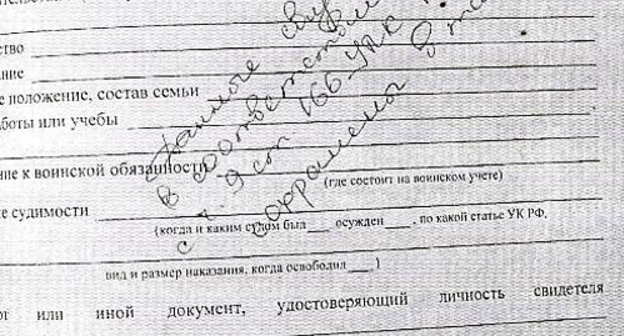 ство
ние
е положение, состав семьи
боты или учебы
ние к воинской обязанности
(где состоит на воинском учете)
е судимости
(когда и каким судом был___ осужден____, по какой статье УК РФ,
вид и размер наказания, когда освободил____)
или иной документ, удостоверяющий личность свидетеля
Данные
В соответствии
с ч. 9 ст 166 УПК
сохранена в та